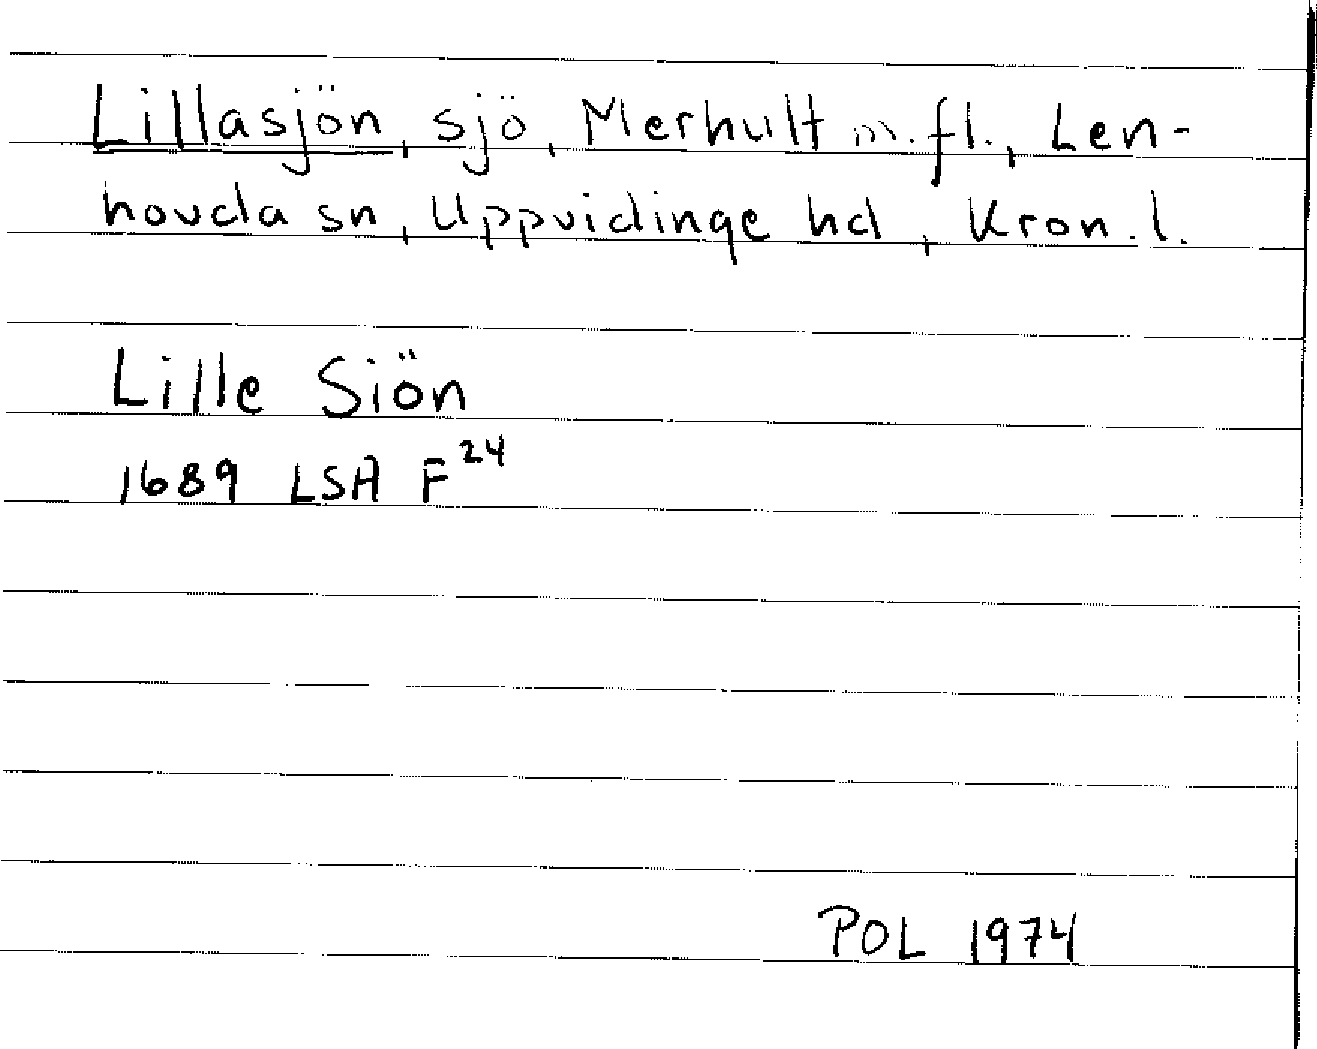 Lillasjön, sjö, Merhult m.fl., Len-
hovda sn, Uppvidinge hd, Kron.l.
Lille Siön
1689 LSA F24
POL 1974